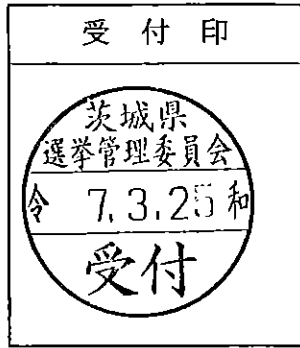 受付印
茨城県
選挙管理委員会
令 7.3.25 和
受付